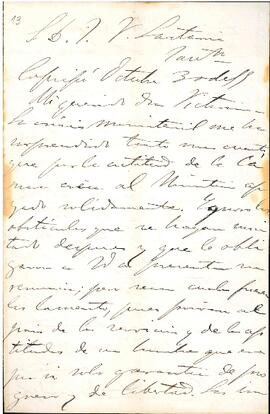 13
S. D. J. V. Lastarria
Octubre 3 de
Mi querido don Victorino
La crisis ministerial me ha
sorprendido tanto mas cuanto
que por la actitud de la Ca
mara creia al Ministerio apo
yado sólidamente. Ignoro los
obstáculos que se hayan susci
tado despues y que lo obli
garon a Ud a presentar su
renuncia; pero sean cuales fueren
los lamento, pues privan al
pais de los servicios y de las ap
titudes de un hombre que era
para
greso y de libertad. Las